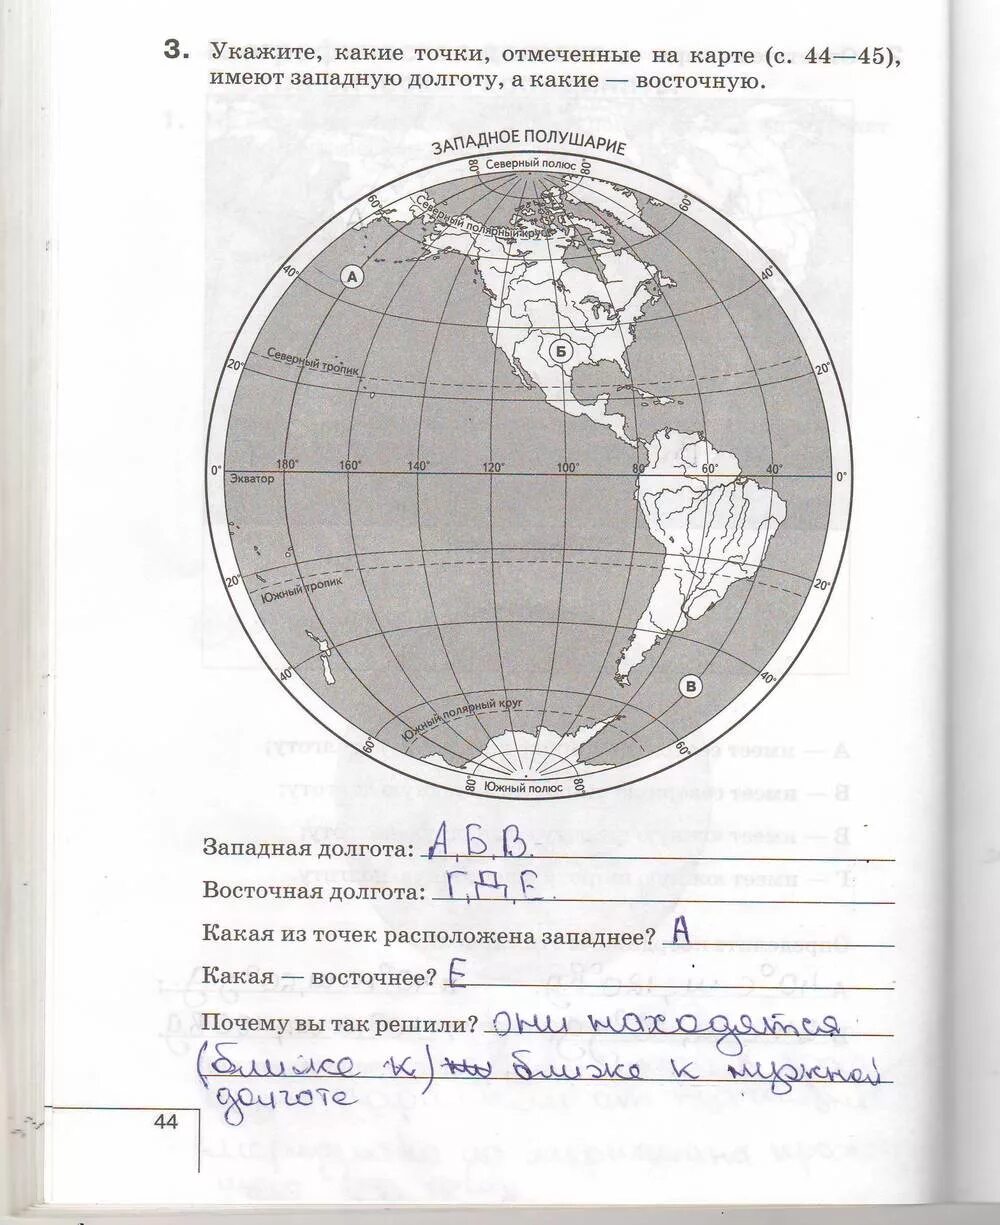 3. Укажите, какие точки, отмеченные на карте (с. 44—45),
имеют западную долготу, а какие — восточную.
ЗАПАДНОЕ ПОЛУШАРИЕ
80° Северный полюс 80°
60° Северный полярный круг 60°
40° А 40°
Б
20° Северный тропик 20°
0° 180° 160° 140° 120° 100° 80° 60° 40° 0°
Экватор
20° Южный тропик 20°
40° В 40°
60° Южный полярный круг 60°
80° Южный полюс 80°
Западная долгота: А, Б, В.
Восточная долгота: Г, Д, Е.
Какая из точек расположена западнее? А
Какая — восточнее? Е
Почему вы так решили? они находятся
(ближе к) ближе к нужной
долготе
44